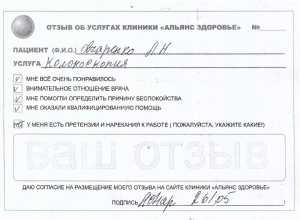 ОТЗЫВ ОБ УСЛУГАХ КЛИНИКИ «АЛЬЯНС ЗДОРОВЬЕ» №
ПАЦИЕНТ (Ф.И.О.) Л.Н
УСЛУГА Колоноскопия
МНЕ ВСЁ ОЧЕНЬ ПОНРАВИЛОСЬ
ВНИМАТЕЛЬНОЕ ОТНОШЕНИЕ ВРАЧА
МНЕ ПОМОГЛИ ОПРЕДЕЛИТЬ ПРИЧИНУ БЕСПОКОЙСТВА
МНЕ ОКАЗАЛИ КВАЛИФИЦИРОВАННУЮ ПОМОЩЬ
У МЕНЯ ЕСТЬ ПРЕТЕНЗИИ И НАРЕКАНИЯ К РАБОТЕ ( ПОЖАЛУЙСТА, УКАЖИТЕ КАКИЕ!)
ваш отзыв
ДАЮ СОГЛАСИЕ НА РАЗМЕЩЕНИЕ МОЕГО ОТЗЫВА НА САЙТЕ КЛИНИКИ «АЛЬЯНС ЗДОРОВЬЕ»
ПОДПИСЬ 26/05